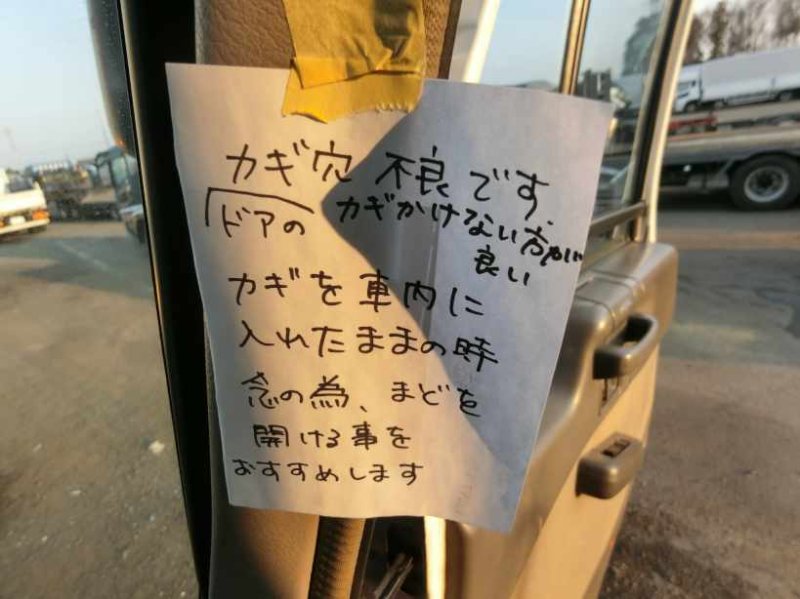 カギ穴 不良です.
ドアの カギかけない方がいい
良い
カギを車内に
入れたままの時
念の為、まどを
開ける事を
おすすめします